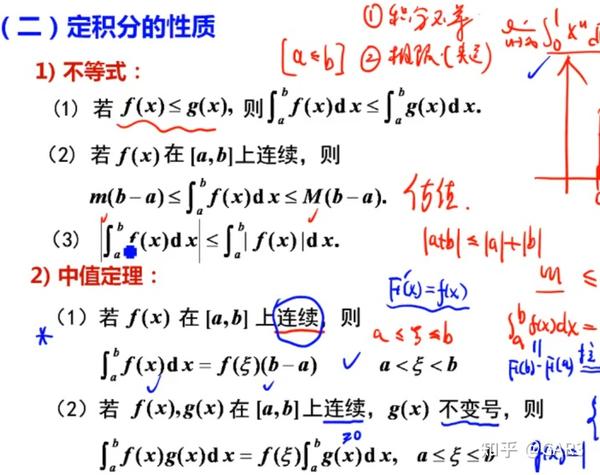 (二) 定积分的性质
① 积分不等
[a≤b] ②
1) 不等式：
(1) 若 f(x)≤g(x), 则∫_a^b f(x)dx≤∫_a^b g(x)dx.
(2) 若 f(x) 在 [a,b]上连续，则
m(b−a)≤∫_a^b f(x)dx≤M(b−a). 估值.
(3) |∫_a^b f(x)dx|≤∫_a^b|f(x)|dx.
|a+b|≤|a|+|b|
m ≤
2) 中值定理：
F'(x)=f(x)
* (1) 若 f(x) 在 [a,b] 上连续, 则
a≤ξ≤b
∫_a^b f(x)dx=
∫_a^b f(x)dx=f(ξ)(b−a) a<ξ<b
F(b)−F(a)
(2) 若 f(x),g(x)在[a,b]上连续，g(x) 不变号，则
≥0
∫_a^b f(x)g(x)dx=f(ξ)∫_a^b g(x)dx, a≤ξ≤b
g(x)=1
知乎 @CAR3